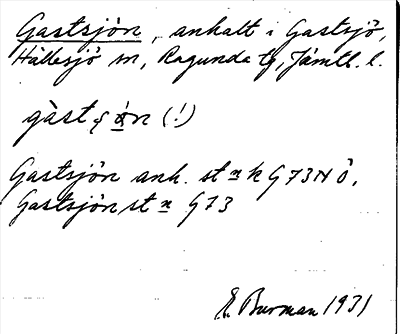 Gastsjön, anhalt i Gastsjö,
Hällesjö sn, Ragunda tg, Jämtl. l.
gàst
(!)
Gastsjön anh. st n k G 73 N Ö.
Gastsjön st n G 73
E. Burman 1931